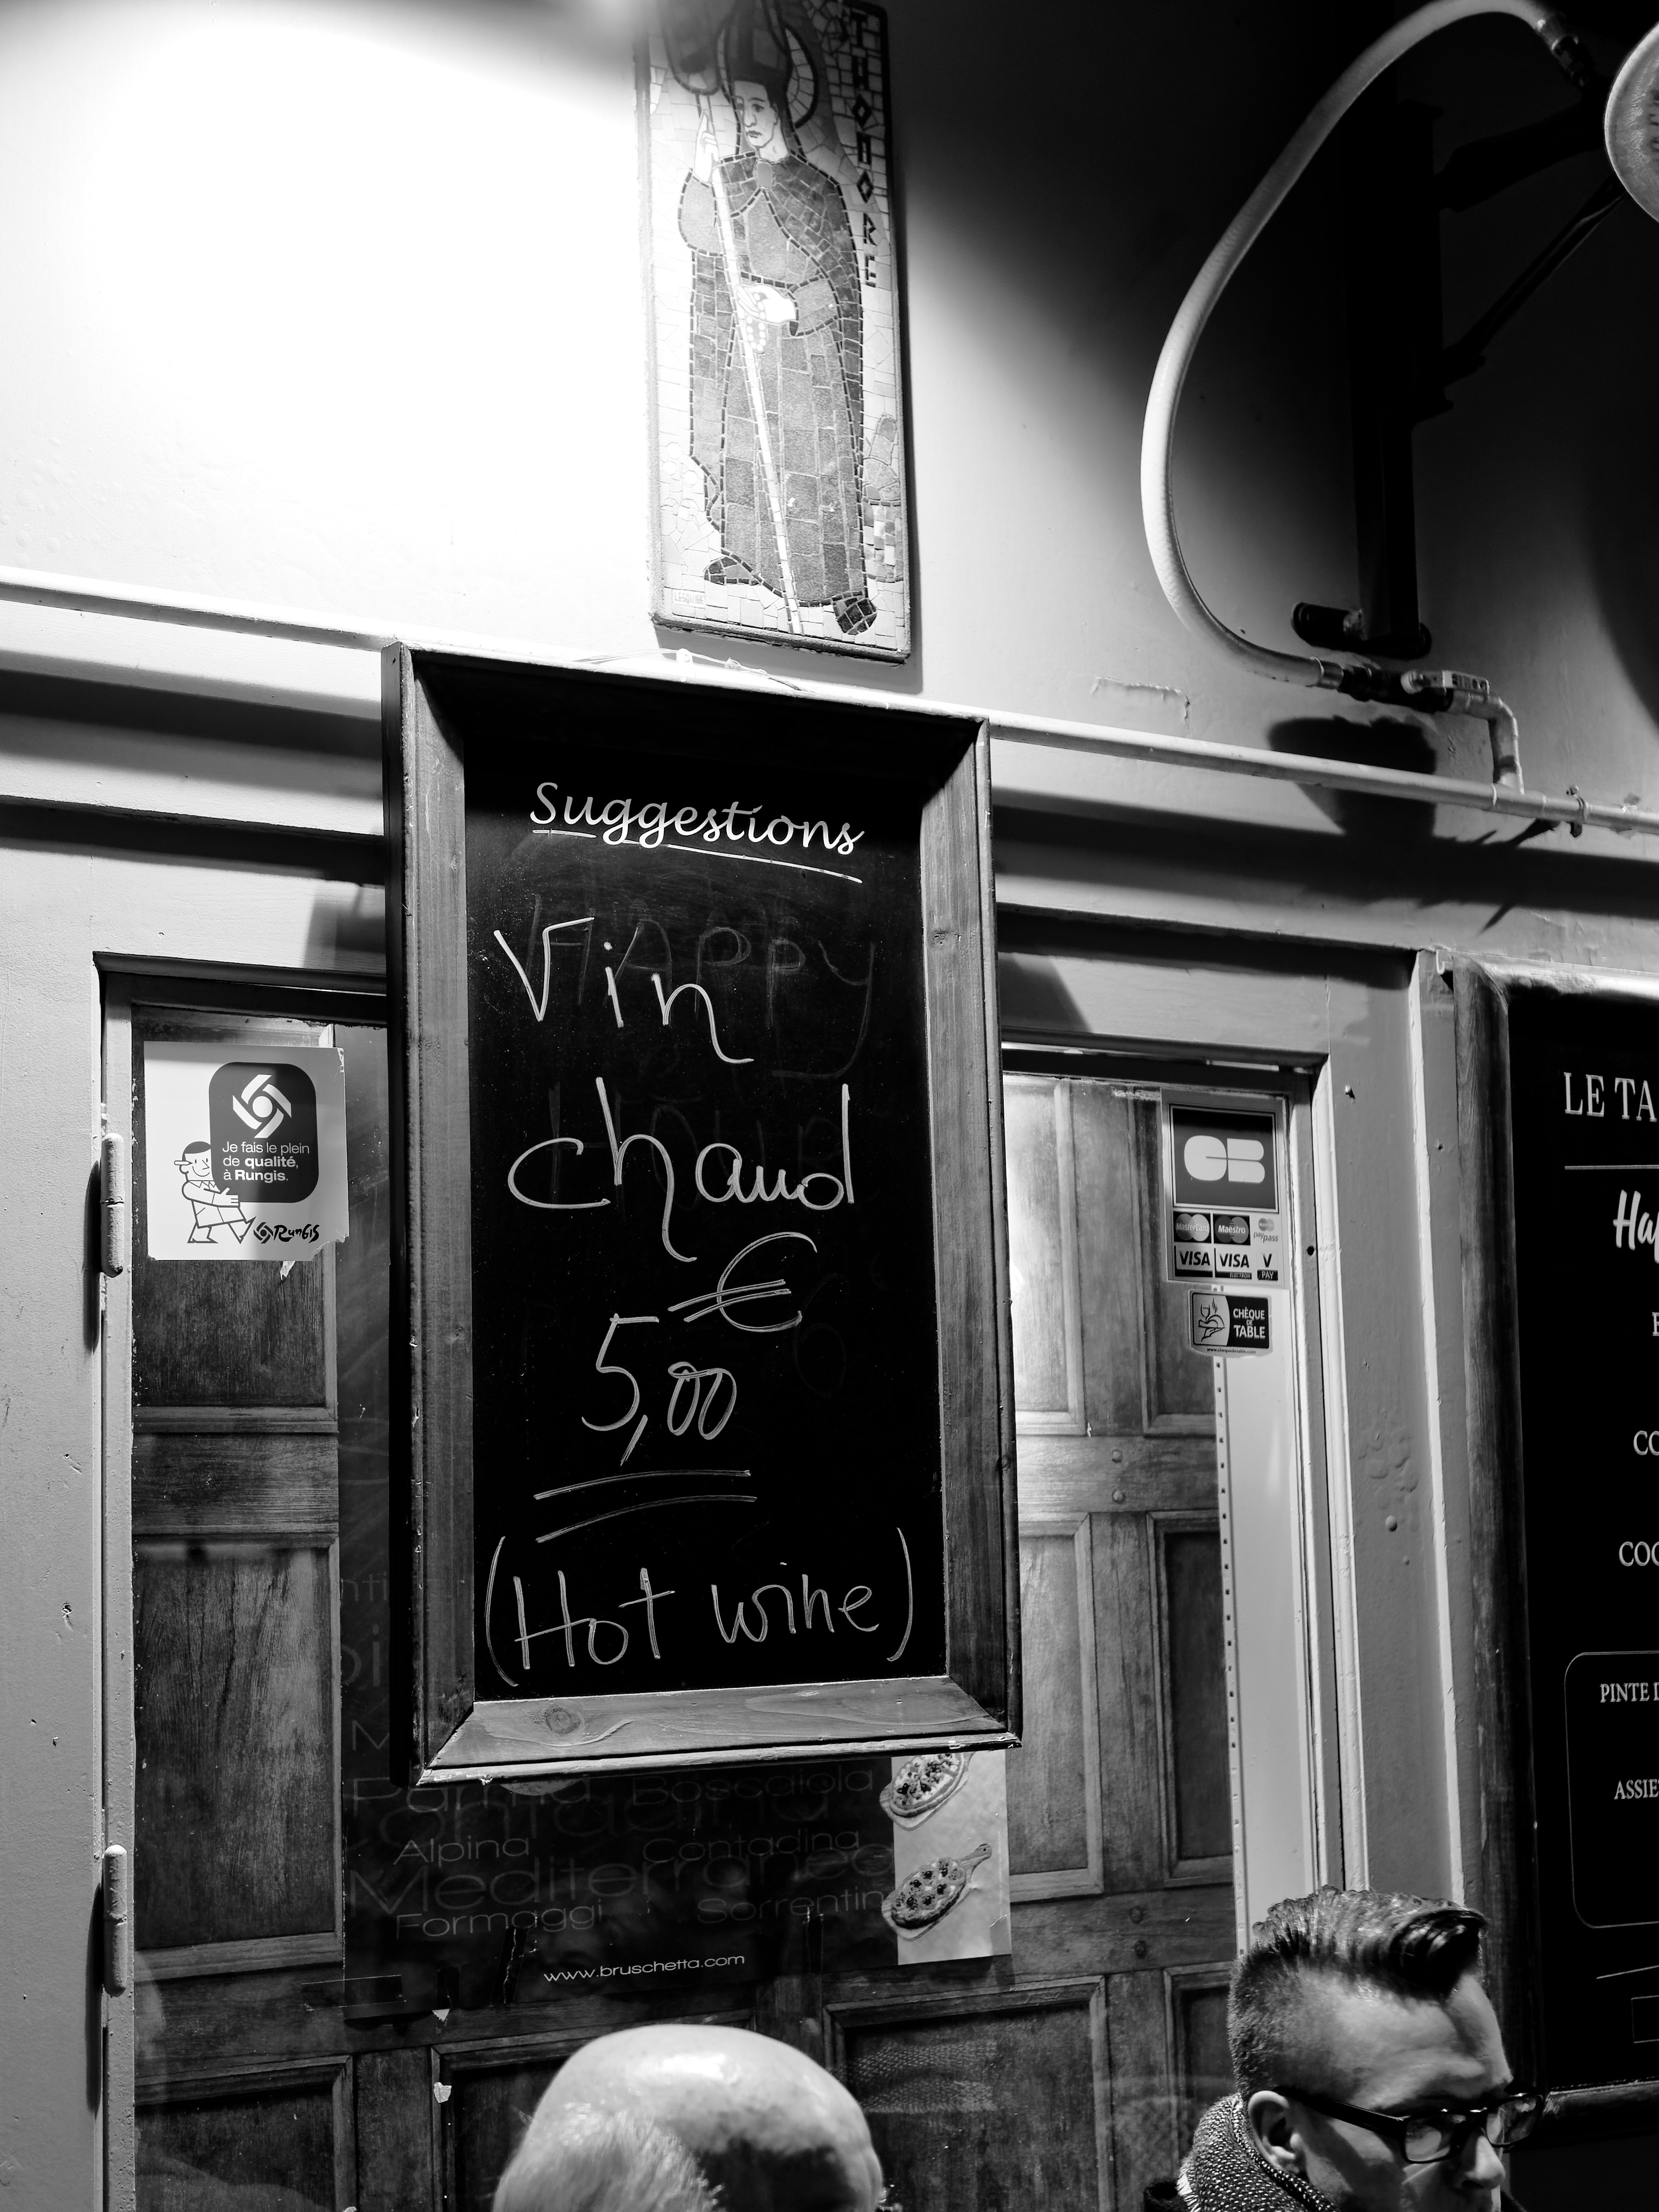 ST HONORE
Suggestions
Vin
chaud
€
5,00
(Hot wine)
HAPPY
Je fais le plein
de qualité,
à Rungis.
RUNGIS
CB
MasterCard Maestro paypass
VISA VISA V
ELECTRON PAY
CHÈQUE
DE
TABLE
www.chequedetable.com
Boscaiola
Alpina Contadina
Mediterranea
Formaggi Sorrentin
www.bruschetta.com
LE TA
Hap
CO
COC
PINTE D
ASSIE